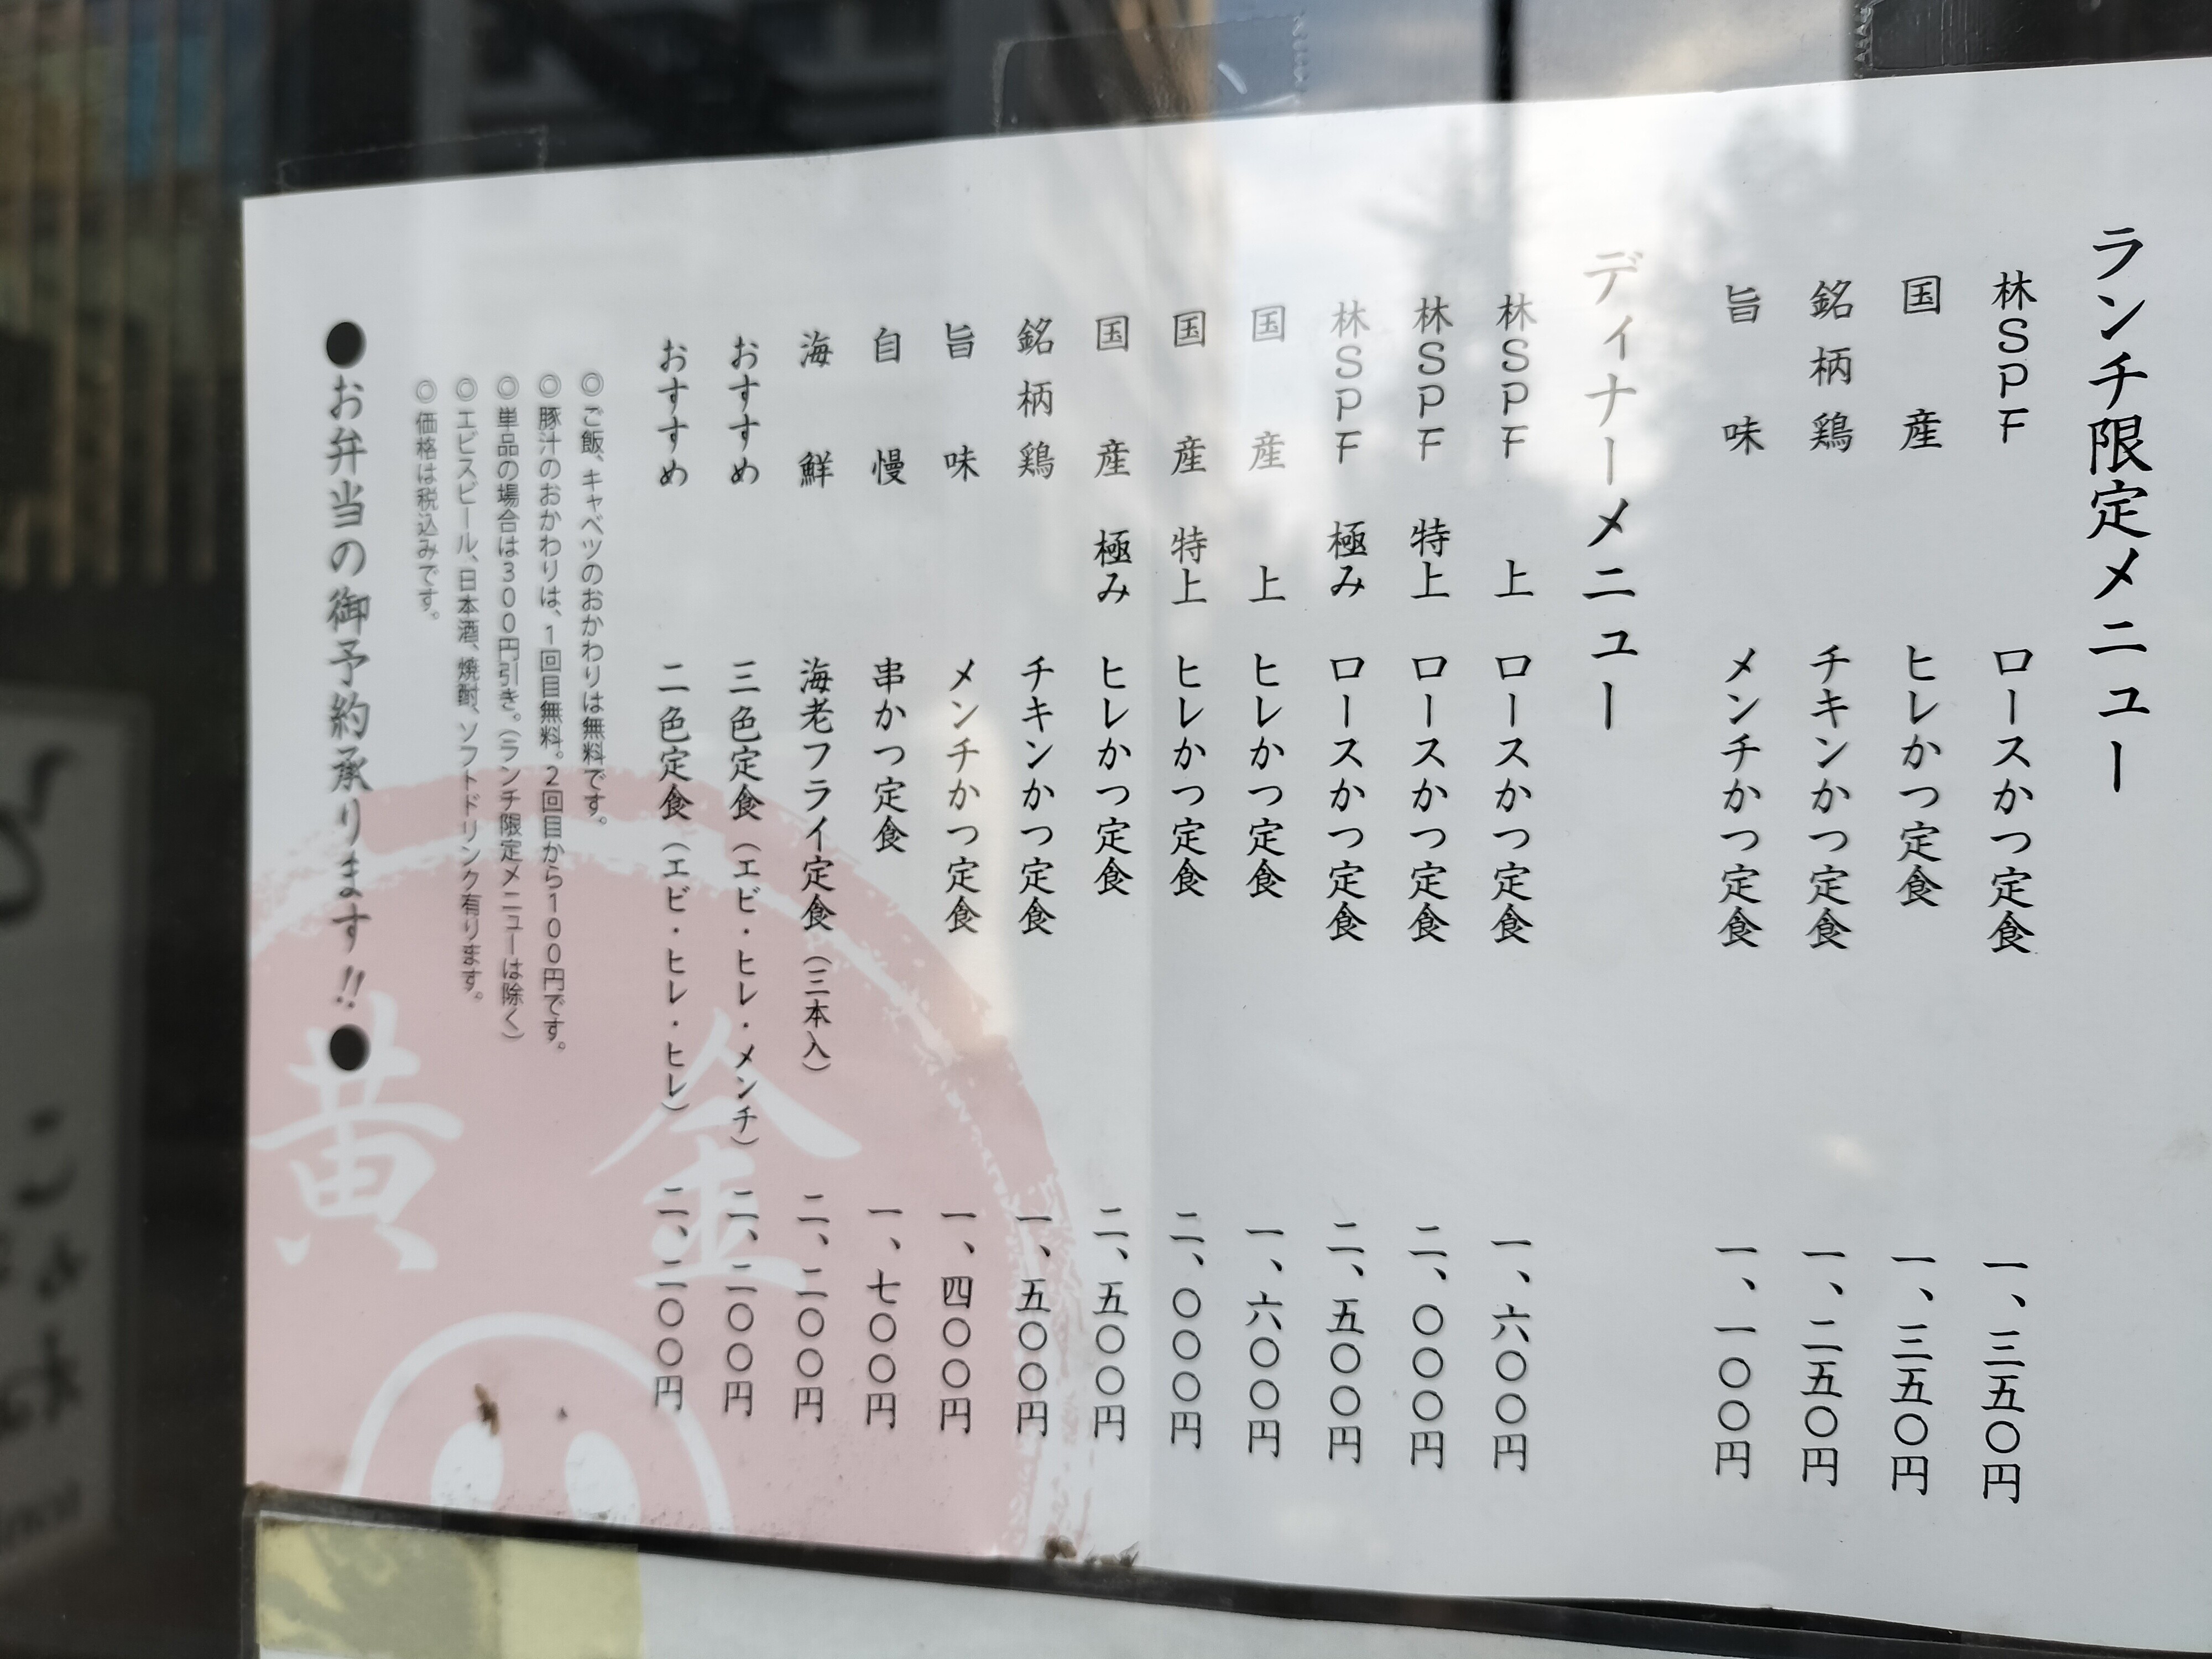 ランチ限定メニュー
林SPF ロースかつ定食 一、三五〇円
国産 ヒレかつ定食 一、三五〇円
銘柄鶏 チキンかつ定食 一、二五〇円
旨味 メンチかつ定食 一、一〇〇円
ディナーメニュー
林SPF 上 ロースかつ定食 一、六〇〇円
林SPF 特上 ロースかつ定食 二、〇〇〇円
林SPF 極み ロースかつ定食 二、五〇〇円
国産 上 ヒレかつ定食 一、六〇〇円
国産 特上 ヒレかつ定食 二、〇〇〇円
国産 極み ヒレかつ定食 二、五〇〇円
銘柄鶏 チキンかつ定食 一、五〇〇円
旨味 メンチかつ定食 一、四〇〇円
自慢 串かつ定食 一、七〇〇円
海鮮 海老フライ定食（三本入） 二、二〇〇円
おすすめ 三色定食（エビ・ヒレ・メンチ） 二、二〇〇円
おすすめ 二色定食（エビ・ヒレ・ヒレ） 二、二〇〇円
◎ご飯、キャベツのおかわりは無料です。
◎豚汁のおかわりは、1回目無料。2回目から100円です。
◎単品の場合は300円引き。（ランチ限定メニューは除く）
◎エビスビール、日本酒、焼酎、ソフトドリンク有ります。
◎価格は税込みです。
●お弁当の御予約承ります!!●
黄金